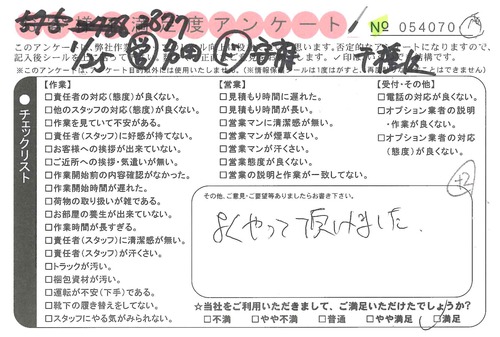 満足度アンケート
№ 054070
1/25
【作業】
□責任者の対応(態度)が良くない。
□他のスタッフの対応(態度)が良くない。
□作業を見ていて不安がある。
□責任者(スタッフ)に好感が持てない。
□お客様への挨拶が出来ていない。
□ご近所への挨拶・気遣いが無い。
□作業開始前の内容確認がなかった。
□作業開始時間が遅れた。
□荷物の取り扱いが雑である。
□お部屋の養生が出来ていない。
□作業時間が長すぎる。
□責任者(スタッフ)に清潔感が無い。
□責任者(スタッフ)が汗くさい。
□トラックが汚い。
□梱包資材が汚い。
□運転が不安(下手)である。
□靴下の履き替えをしてない。
□スタッフにやる気がみられない。
【営業】
□見積もり時間に遅れた。
□見積もり時間が長い。
□営業マンに清潔感が無い。
□営業マンが煙草くさい。
□営業マンが汗くさい。
□営業態度が良くない。
□営業の説明と作業が一致してない。
【受付・その他】
□電話の対応が良くない。
□オプション業者の説明
・作業が良くない。
□オプション業者の対応
(態度)が良くない。
チェックリスト
+2
その他、ご意見・ご要望等ありましたらお書き下さい。
よくやって頂けました.
☆当社をご利用いただきまして、ご満足いただけたでしょうか?
□不満 □やや不満 □普通 □やや満足 □満足